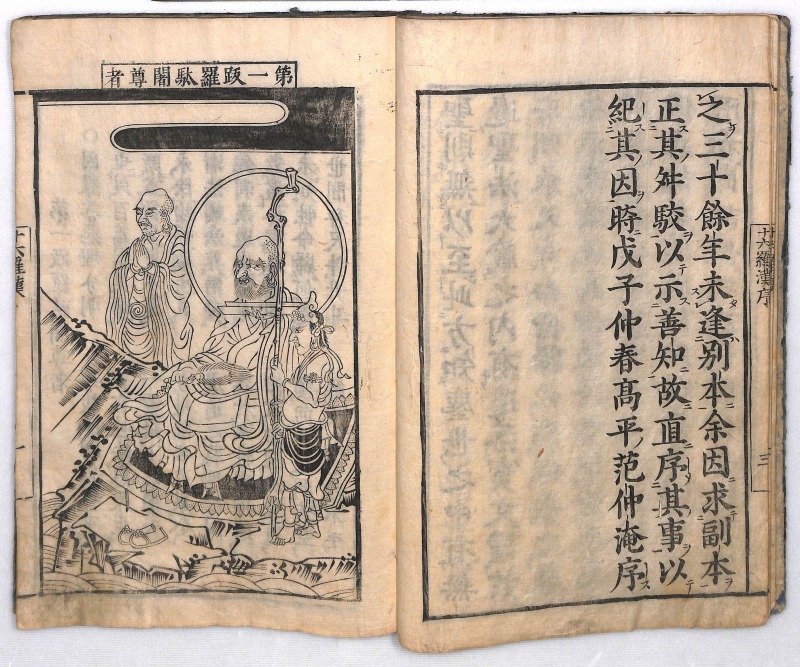 之三十餘年未逢別本余因求副本
正其舛駮以示善知故直序其事以
紀其因時戊子仲春高平范仲淹序
十六羅漢序
三
第一跋羅駄闍尊者
十六羅漢